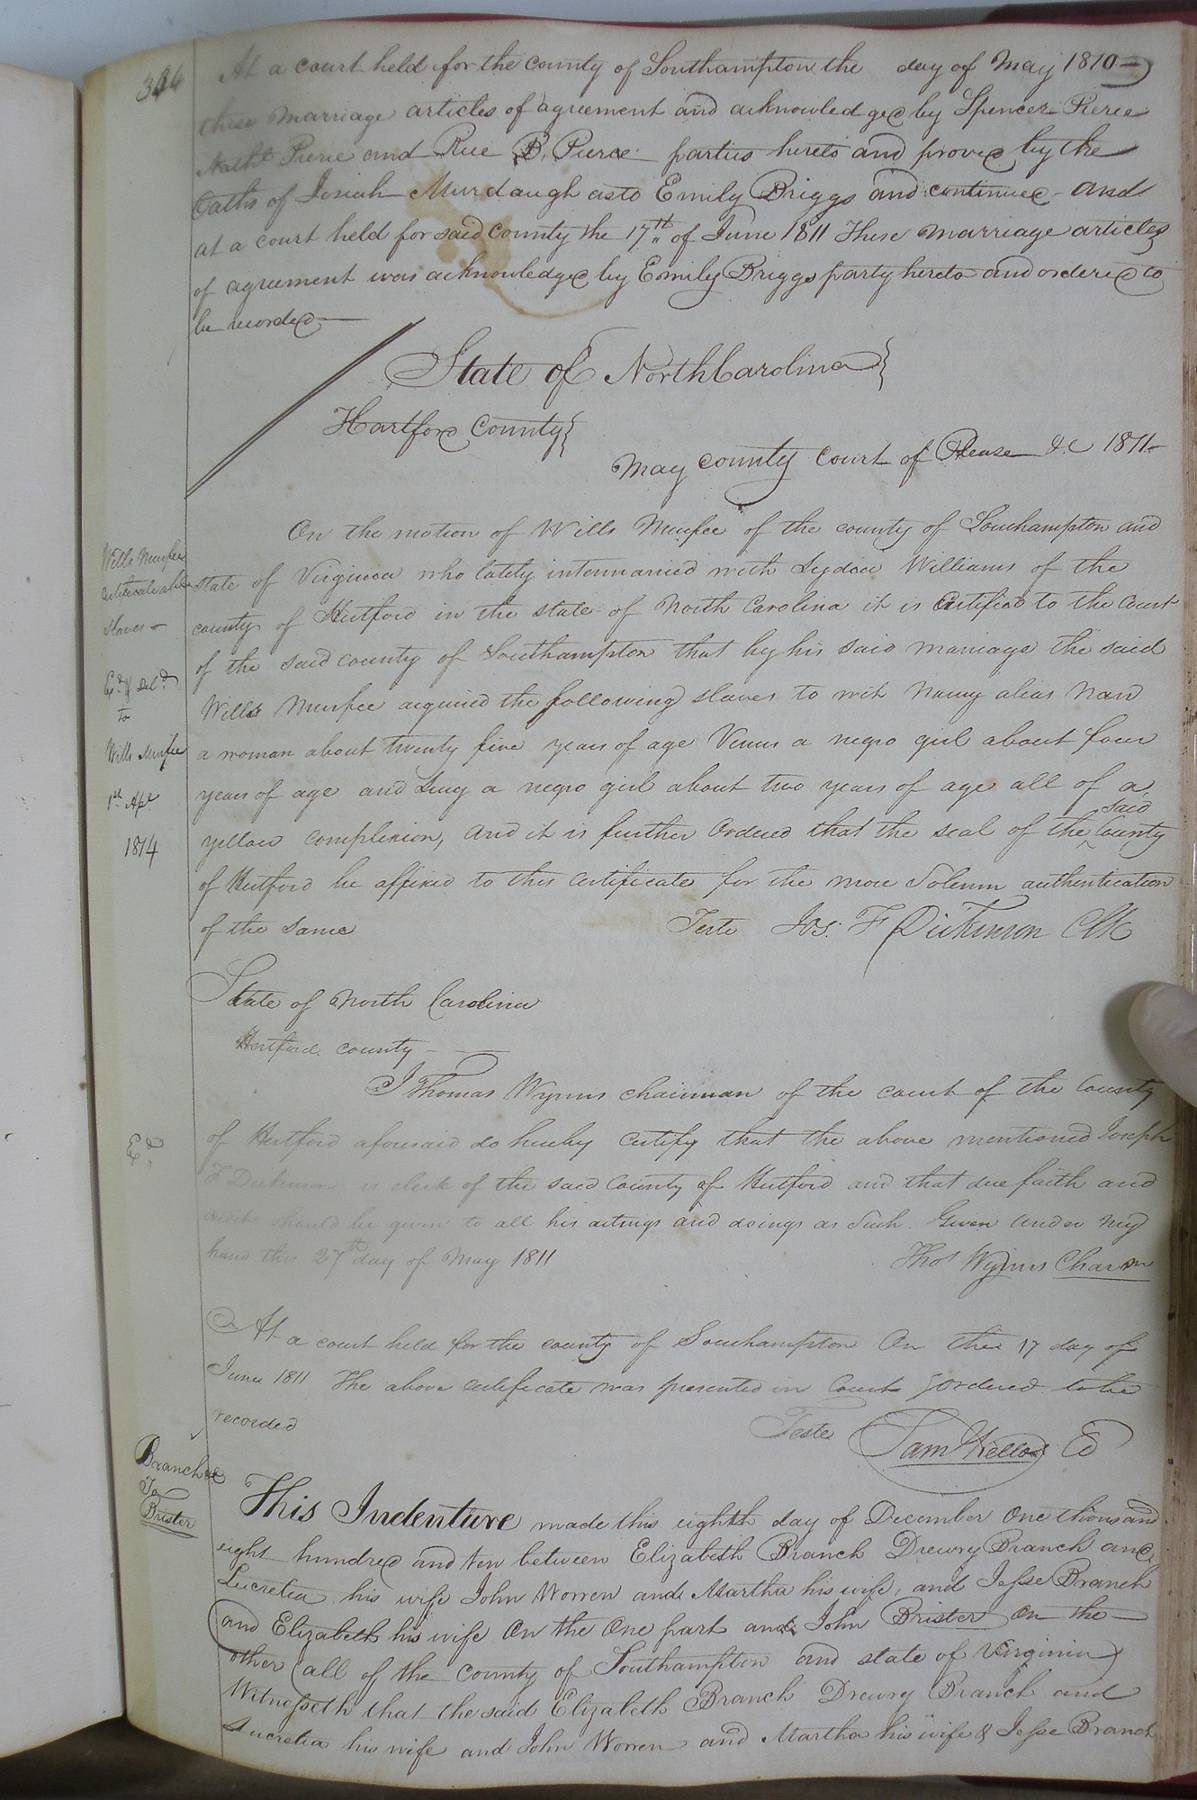 344
At a court held for the county of Southampton the day of May 1810
these marriage articles of agreement and acknowledged by Spencer Pierce
Nathl Pierce and Rice B. Pierce parties hereto and proved by the
Oaths of Josiah Murdaugh as to Emily Briggs and continued and
at a court held for said County the 17th of June 1811 These marriage articles
of agreement was acknowledged by Emily Briggs party hereto and ordered to
be recorded
State of North Carolina
Hartford County
May county Court of Please &C 1811
On the motion of Wills Murfee of the county of Southampton and
Wills Murfee
certificate
slaves
state of Virginia who lately intermarried with Lydia Williams of the
county of Hertford in the state of North Carolina it is Certified to the Court
of the said county of Southampton that by his said marriage the said
Exd & Deld
to
Wills Murfee
1st Apl
1814
Wills Murfee acquired the following slaves to wit Nanny alias Nan
a woman about twenty five years of age Venus a negro girl about four
years of age and Lucy a negro girl about two years of age all of a
yellow complexion, and it is further Ordered that the seal of the said County
of Hertford be affixed to this Certificate for the more Solemn authentication
of the Same
Teste Jos. F Dickinson Clk
State of North Carolina
Hertford county
I Thomas Wynns chairman of the court of the County
Exd
of Hertford aforesaid do hereby Certify that the above mentioned Joseph
F Dickinson is clerk of the said County of Hertford and that due faith and
credit should be given to all his actings and doings as Such. Given under my
hand this 27th day of May 1811
Thos Wynns Charmn
At a court held for the county of Southampton On the 17 day of
June 1811 The above certificate was presented in Court & Ordered to be
recorded
Teste Sam Kello
Branch &c
To
Brister
This Indenture made this eighth day of December One thousand
eight hundred and ten between Elizabeth Branch Drewry Branch and
Lucretia his wife John Worren and Martha his wife, and Jesse Branch
and Elizabeth his wife On the One part and John Brister On the
other (all of the County of Southampton and state of Virginia)
Witnesseth that the said Elizabeth Branch Drewry Branch and
Lucretia his wife and John Worren and Martha his wife & Jesse Branch